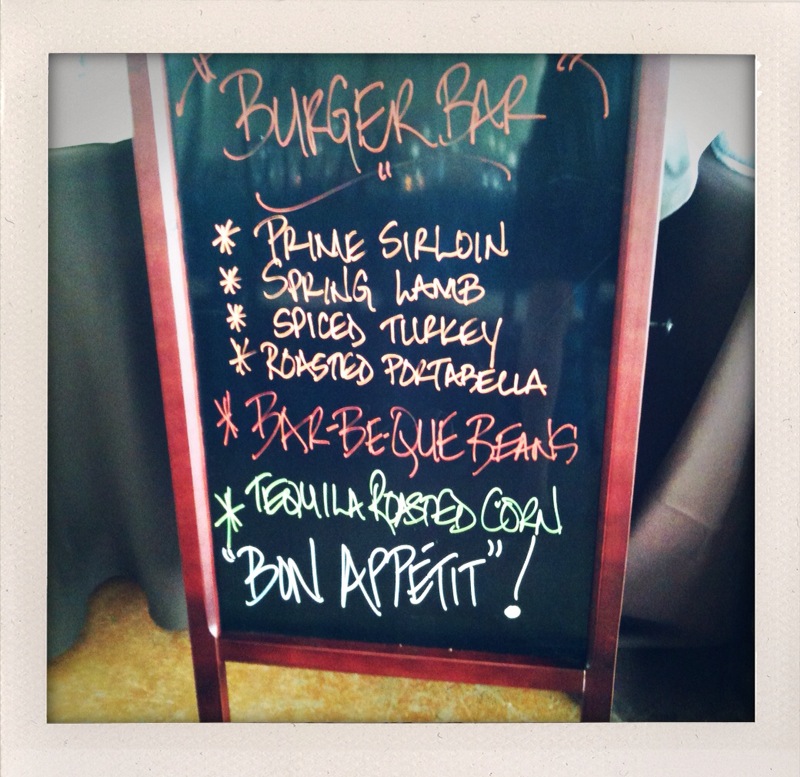 "BURGER BAR"
* PRIME SIRLOIN
* SPRING LAMB
* SPICED TURKEY
* ROASTED PORTABELLA
* BAR-BE-QUE BEANS
* TEQUILA ROASTED CORN
"BON APPÉTIT"!